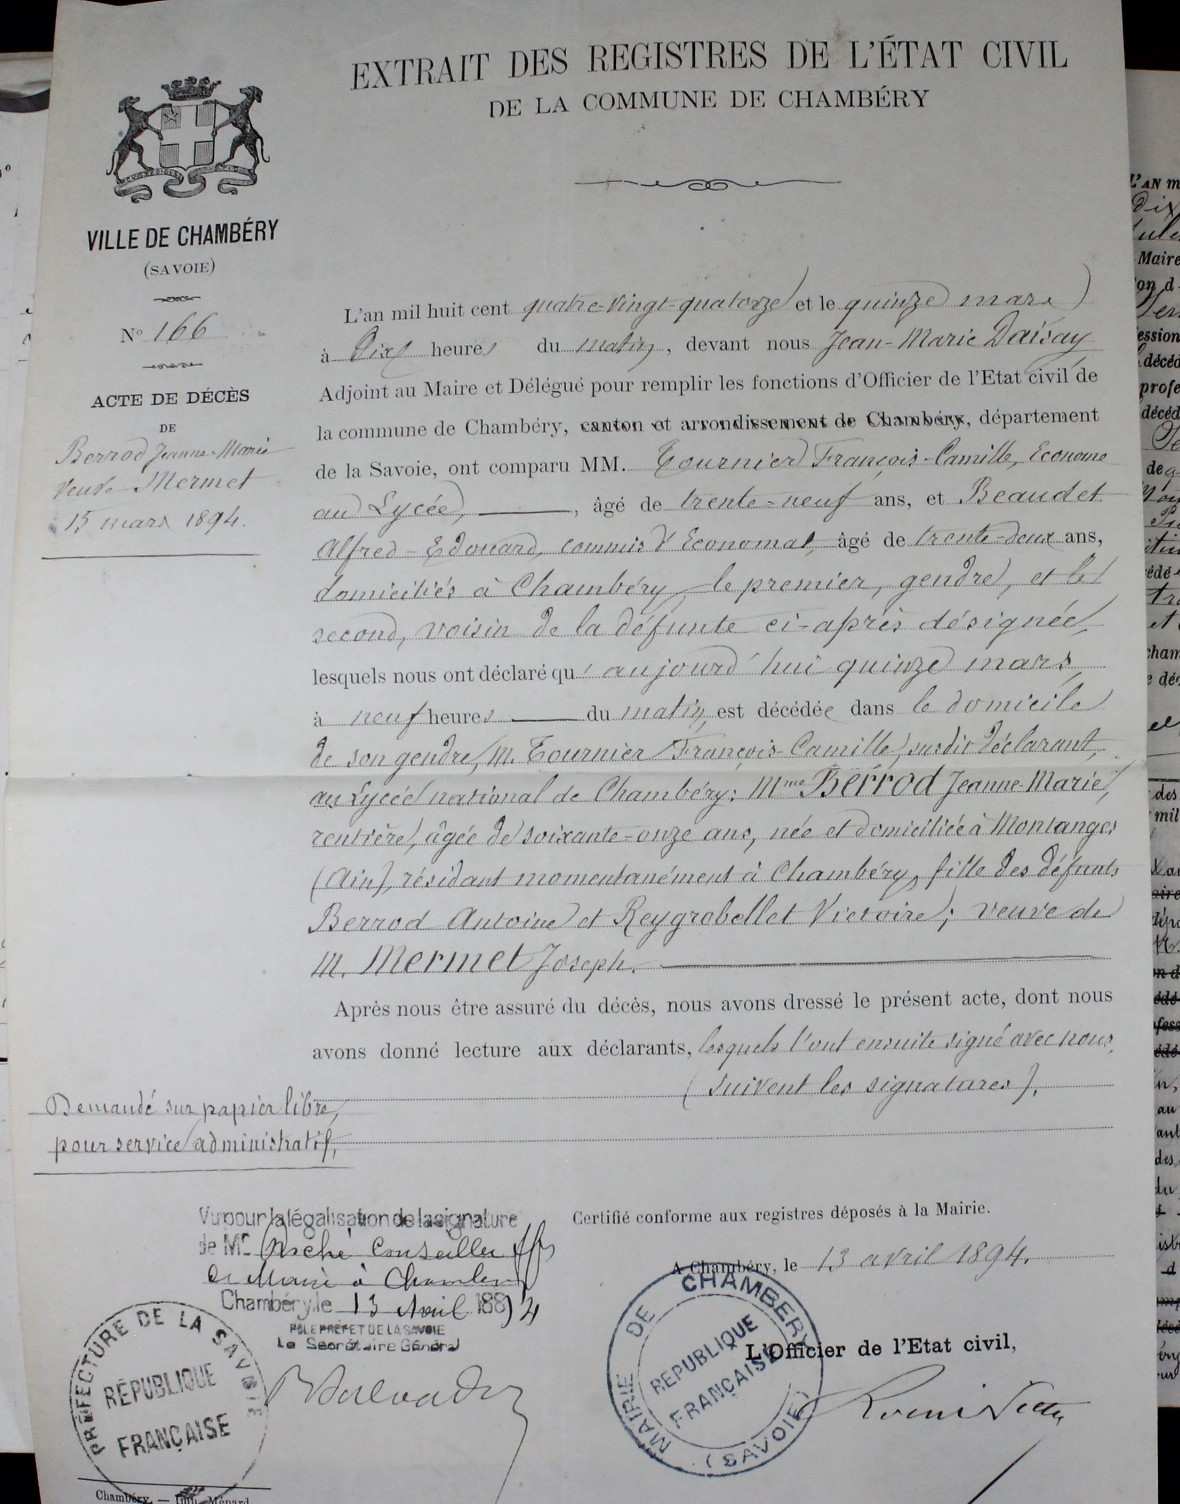 EXTRAIT DES REGISTRES DE L'ÉTAT CIVIL
DE LA COMMUNE DE CHAMBÉRY
VILLE DE CHAMBÉRY
(SAVOIE)
N° 166
ACTE DE DÉCÈS
DE
Berrod Jeanne-Marie
veuve Mermet
15 mars 1894.
L'an mil huit cent quatre-vingt-quatorze et le quinze mars
à dix heures du matin, devant nous Jean-Marie Daisay
Adjoint au Maire et Délégué pour remplir les fonctions d'Officier de l'Etat civil de
la commune de Chambéry, canton et arrondissement de Chambéry, département
de la Savoie, ont comparu MM. Tournier François-Camille, Econome
au Lycée, âgé de trente-neuf ans, et Beaudet
Alfred-Edouard, commis d'Economat, âgé de trente-deux ans,
domiciliés à Chambéry, le premier, gendre, et le
second, voisin de la défunte ci-après désignée,
lesquels nous ont déclaré qu'aujourd'hui quinze mars,
à neuf heures du matin, est décédée dans le domicile
de son gendre, M. Tournier François-Camille, susdit déclarant,
au Lycée national de Chambéry: Mme Berrod Jeanne-Marie,
rentière, âgée de soixante-onze ans, née et domiciliée à Montanges
(Ain), résidant momentanément à Chambéry, fille des défunts
Berrod Antoine et Reygrobellet Victoire; veuve de
M. Mermet Joseph.
Après nous être assuré du décès, nous avons dressé le présent acte, dont nous
avons donné lecture aux déclarants, lesquels l'ont ensuite signé avec nous,
(suivent les signatures).
Demandé sur papier libre,
pour service administratif,
Vu pour la légalisation de la signature
de Mr Conseiller ffs
de Maire à Chambéry
Chambéry, le 13 Avril 1894
P. LE PRÉFET DE LA SAVOIE
Le Secrétaire Général
PRÉFECTURE DE LA SAVOIE
RÉPUBLIQUE
FRANÇAISE
Certifié conforme aux registres déposés à la Mairie.
A Chambéry, le 13 avril 1894.
L'Officier de l'Etat civil,
MAIRIE DE CHAMBERY
(SAVOIE)
REPUBLIQUE
FRANÇAISE
Chambéry. — Imp. Ménard